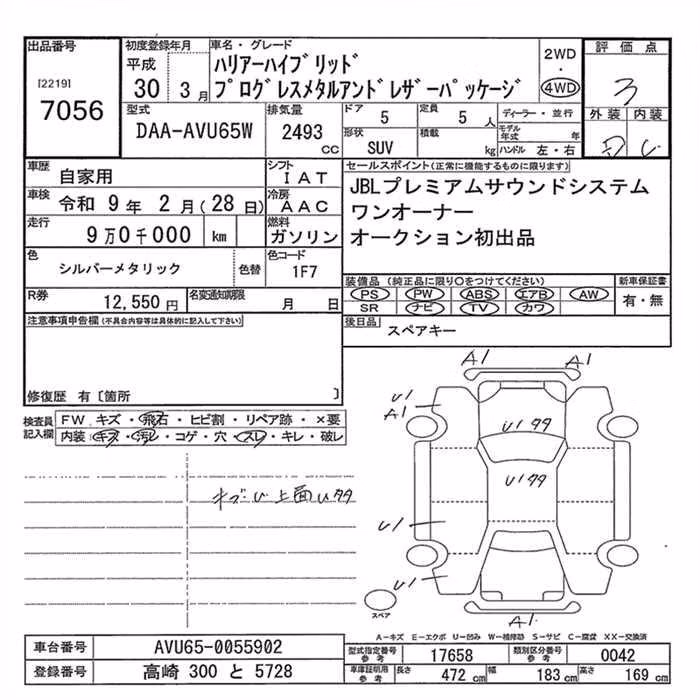 出品番号 [2219] 7056
初度登録年月 平成 30 3月
車名・グレード ハリアーハイブリッド
プログレスメタルアンドレザーパッケージ
2WD・4WD
評価点 3
外装 内装
型式 DAA-AVU65W
排気量 2493 CC
ドア 5
定員 5 人
形状 SUV
積載 kg
ディーラー・並行
モデル年式 年
ハンドル 左・右
車歴 自家用
シフト IAT
車検 令和 9年 2月(28日)
冷房 AAC
走行 9万0千000 km
燃料 ガソリン
色 シルバーメタリック 色替
色コード 1F7
R券 12,550円
名変通知期限 月 日
セールスポイント(正常に機能するものに限ります)
JBLプレミアムサウンドシステム
ワンオーナー
オークション初出品
装備品 (純正品に限り○をつけてください)
PS PW ABS エアB AW
SR ナビ TV カワ
新車保証書 有・無
後日品 スペアキー
注意事項申告欄(不具合内容等は具体的に記入して下さい)
修復歴 有〔箇所 〕
検査員記入欄
FW キズ・飛石・ヒビ割・リペア跡・×要
内装・キズ・汚レ・コゲ・穴・スレ・キレ・破レ
A1 A1
U1
A1
U1
U1
A1
スペア
A-キズ E-エクボ U-凹み W-補修跡 S-サビ C-腐蝕 XX-交換済
車台番号 AVU65-0055902
登録番号 高崎 300 と 5728
型式指定番号参考 17658
類別区分番号参考 0042
車庫証明用参考 長さ 472 cm 幅 183 cm 高さ 169 cm